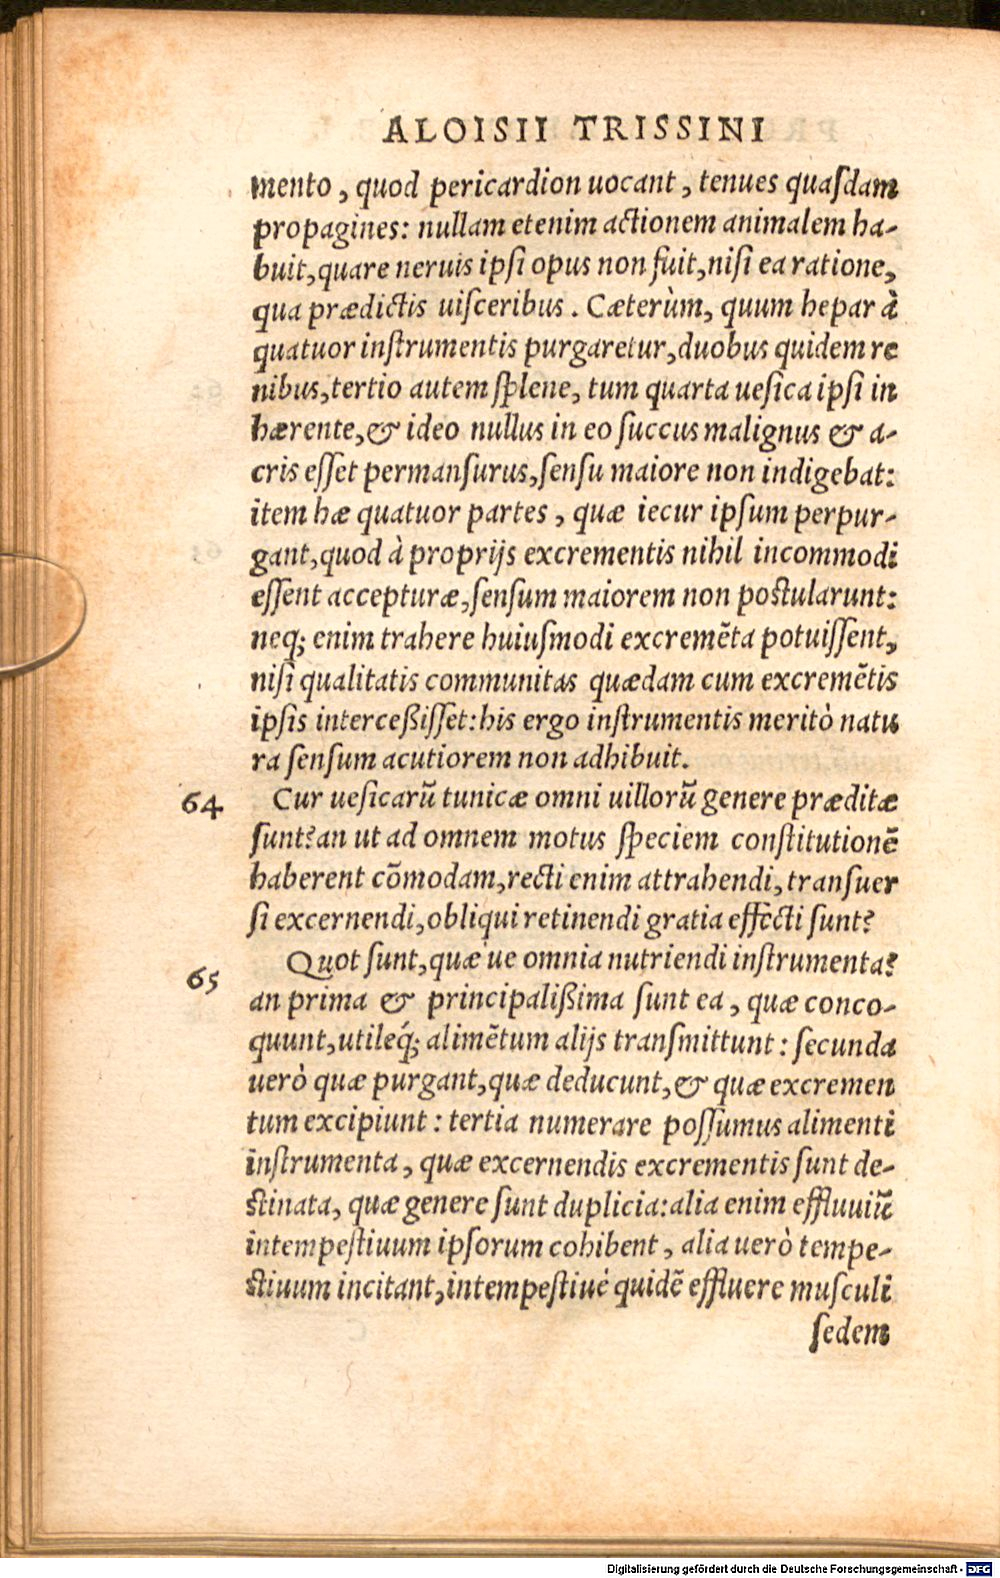 ALOISII TRISSINI
mento, quod pericardion uocant, tenues quasdam
propagines: nullam etenim actionem animalem ha-
buit, quare neruis ipsi opus non fuit, nisi ea ratione,
qua prædictis uisceribus. Cæterùm, quum hepar à
quatuor instrumentis purgaretur, duobus quidem re
nibus, tertio autem splene, tum quarta uesica ipsi in
hærente, & ideo nullus in eo succus malignus & a-
cris esset permansurus, sensu maiore non indigebat:
item hæ quatuor partes, quæ iecur ipsum perpur-
gant, quod à proprijs excrementis nihil incommodi
essent accepturæ, sensum maiorem non postularunt:
neq; enim trahere huiusmodi excremẽta potuissent,
nisi qualitatis communitas quædam cum excremẽtis
ipsis interceßisset: his ergo instrumentis meritò natu
ra sensum acutiorem non adhibuit.
64 Cur uesicarũ tunicæ omni uillorũ genere præditæ
sunt? an ut ad omnem motus speciem constitutionẽ
haberent cõmodam, recti enim attrahendi, transuer
si excernendi, obliqui retinendi gratia effecti sunt?
65 Quot sunt, quæ ue omnia nutriendi instrumenta?
an prima & principalißima sunt ea, quæ conco-
quunt, utileq́; alimẽtum alijs transmittunt: secunda
uerò quæ purgant, quæ deducunt, & quæ excremen
tum excipiunt: tertia numerare possumus alimenti
instrumenta, quæ excernendis excrementis sunt de-
stinata, quæ genere sunt duplicia: alia enim effluuiũ
intempestiuum ipsorum cohibent, alia uerò tempe-
stiuum incitant, intempestiuè quidẽ effluere musculi
sedem
Digitalisierung gefördert durch die Deutsche Forschungsgemeinschaft - DFG